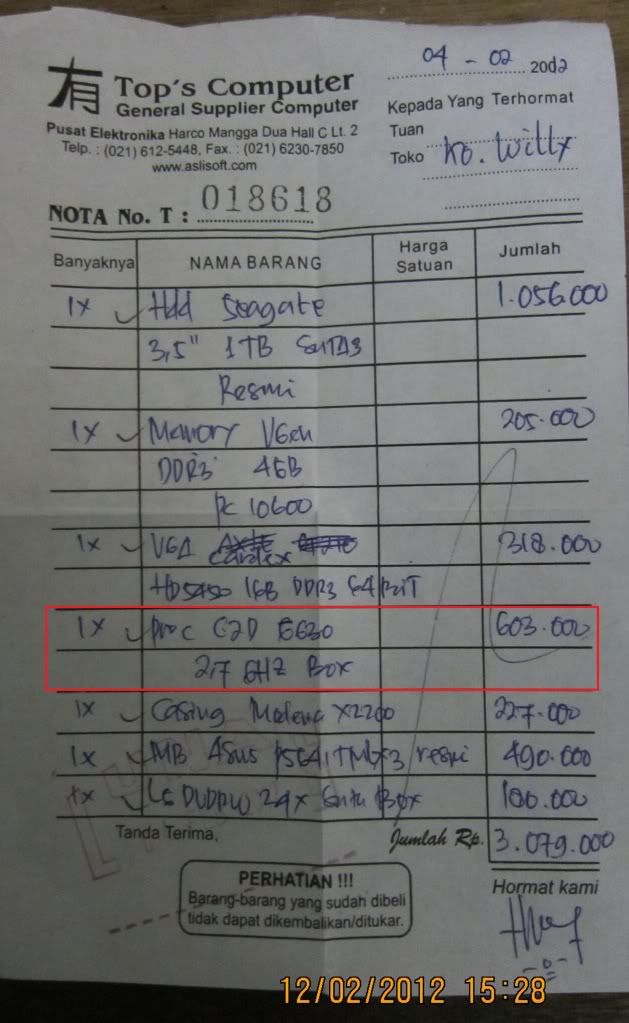 有 Top's Computer
General Supplier Computer
Pusat Elektronika Harco Mangga Dua Hall C Lt. 2
Telp. : (021) 612-5448, Fax. : (021) 6230-7850
www.aslisoft.com
04 - 02 2012
Kepada Yang Terhormat
Tuan
Toko Ko. Willy
NOTA No. T : 018618
Banyaknya NAMA BARANG Harga Satuan Jumlah
1x Hdd Seagate 1.056.000
3,5" 1TB SATA3
Resmi
1x Memory VGen 205.000
DDR3 4GB
PC 10600
1x VGA Cardex 318.000
HD5450 1GB DDR3 64 BiT
1x Proc C2D E630 603.000
2,7 GHZ Box
1x Casing X2200 227.000
1x MB Asus resmi 490.000
1x LG DVDRW 24x Satu Box 180.000
Tanda Terima,
Jumlah Rp. 3.079.000
PERHATIAN !!!
Barang-barang yang sudah dibeli
tidak dapat dikembalikan/ditukar.
Hormat kami
12/02/2012 15:28